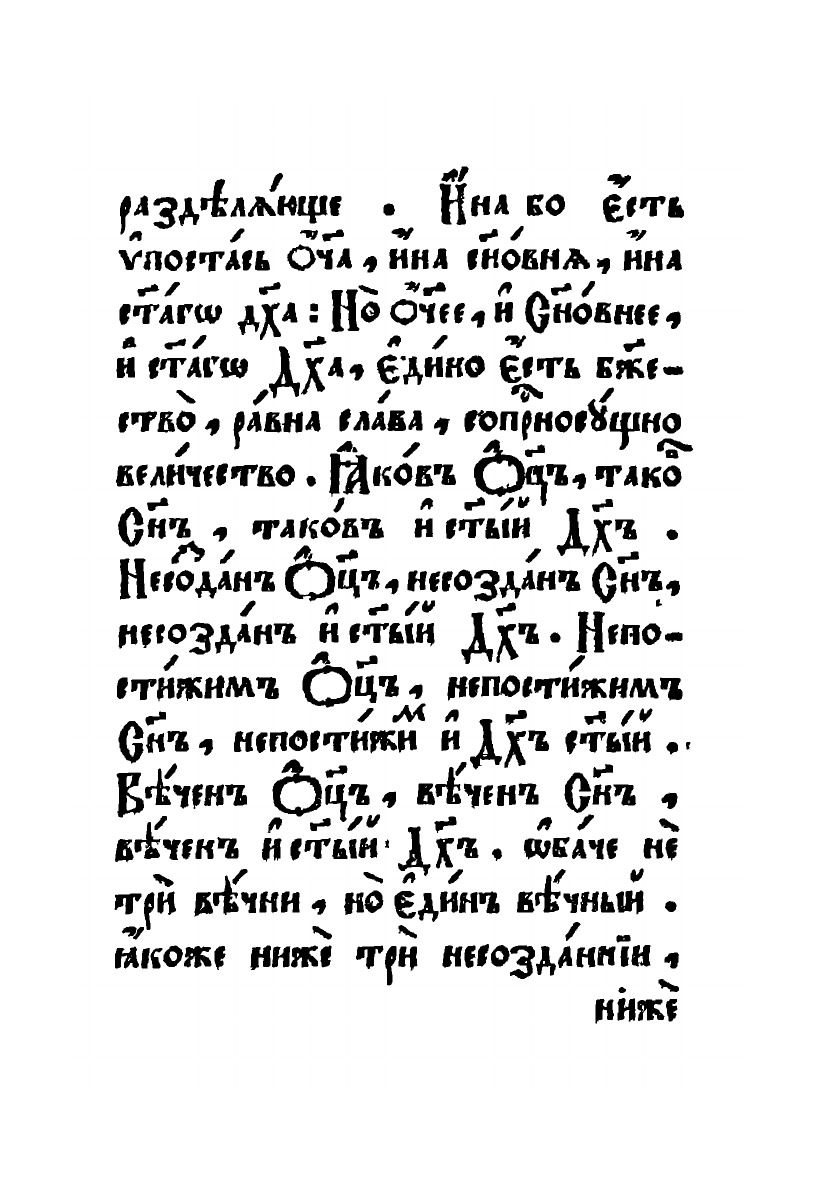 раздѣлѧ́юще . И҆́на бо є҆́сть
ѵ҆поста́сь ѻ҆́ч҃а , и҆́на сн҃о́внѧ , и҆́на
ст҃а́гѡ дх҃а : Но̀ ѻ҆́ч҃ее , и҆ Сн҃о́внее ,
и҆ ст҃а́гѡ Дх҃а , є҆ди́но є҆́сть бж҃е-
ство̀ , ра́вна сла́ва , соприⷭ҇носꙋ́щно
вели́чество . Ꙗ҆ко́въ Ѻ҆ц҃ъ , тако́в̾
Сн҃ъ , тако́въ и҆ ст҃ы́й Дх҃ъ .
Несоⷥда́нъ Ѻ҆ц҃ъ , несозда́нъ Сн҃ъ ,
несозда́нъ и҆ ст҃ы́й Дх҃ъ . Непо-
сти́жимъ Ѻ҆ц҃ъ , непости́жимъ
Сн҃ъ , непости́жиⷨ и҆ Дх҃ъ ст҃ы́й .
Вѣ́ченъ Ѻ҆ц҃ъ , вѣ́ченъ Сн҃ъ ,
вѣ́ченъ и҆ ст҃ы́й Дх҃ъ . ѡ҆ба́че нѐ
трѝ вѣ́чни , но̀ є҆ди́нъ вѣ́чный .
ꙗ҆́коже нижѐ трѝ несозда́ннїи ,
нижѐ